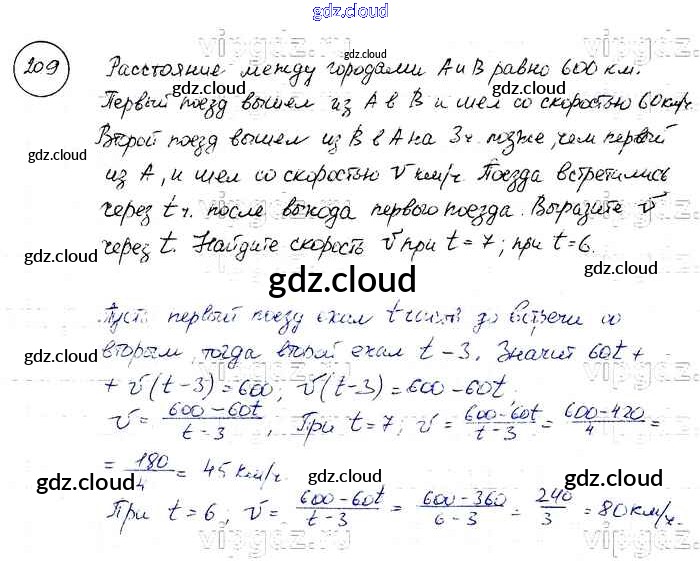 gdz.cloud
209 Расстояние между городами А и В равно 600 км.
Первый поезд вышел из А в В и шел со скоростью 60 км/ч.
Второй поезд вышел из В в А на 3 ч. позже, чем первый
из А, и шел со скоростью v км/ч. Поезда встретились
через t ч. после выхода первого поезда. Выразите v
через t. Найдите скорость v при t = 7; при t = 6.
gdz.cloud
Пусть первый поезд ехал t часов до встречи со
вторым, тогда второй ехал t - 3. Значит 60t +
+ v(t-3) = 600; v(t-3) = 600 - 60t.
v = (600-60t)/(t-3). При t = 7; v = (600-60t)/(t-3) = (600-420)/4 =
= 180/4 = 45 км/ч.
При t = 6; v = (600-60t)/(t-3) = (600-360)/(6-3) = 240/3 = 80 км/ч.